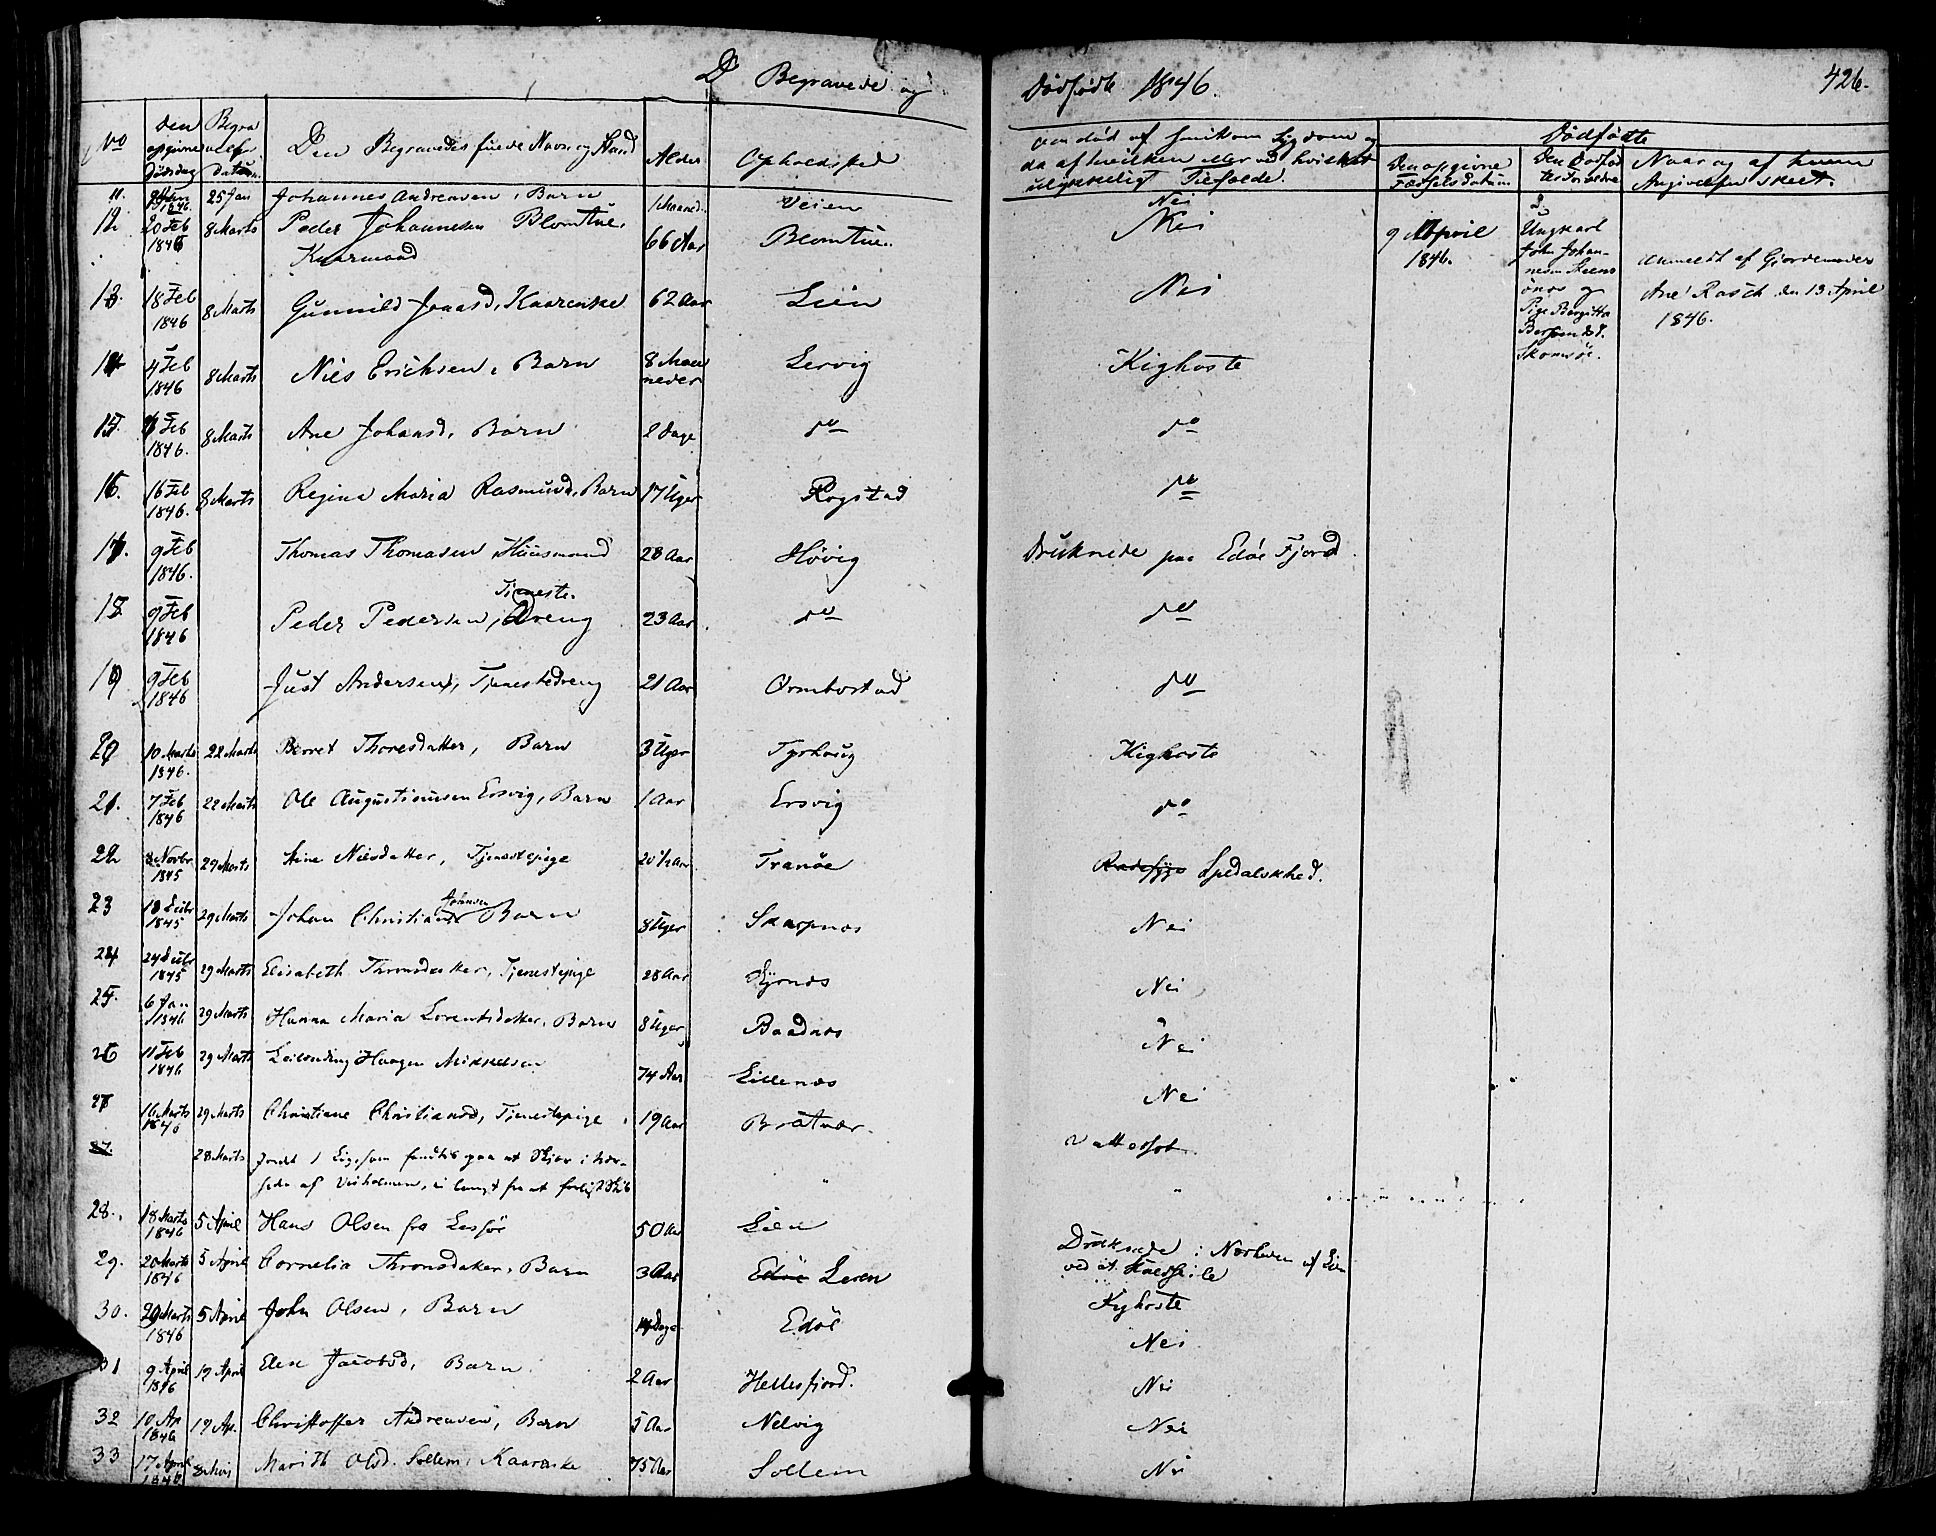 D Begravede og Dødfødte 1846. 426.
No
den opgivne Dødsdag
Begravelses datum
Den Begravedes fulde Navn og Stand
Alder
Opholdssted
om død af smitsom Sygdom og
da af hvilken eller ved hvilket
ulykkeligt Tilfælde.
Dødfødte
Den opgivne Fødselsdatum
Den Dødfødtes Forældre
Naar og af hvem
Angivelsen skeet.
11. 1846. 25 Jan Johannes Andreasen, Barn 1 Maaned. Veien Nei
12 20 Feb 1846 8 Marts Peder Johannesen Blomtue. Kaarmand 66 Aar Blomtue. Nei
9 April 1846.
2. Ungkarl John Johannesen Steensønes og Pige Bergitta Skomsøe.
Anmeldt af Gjordemoder
Ane Rasch den 13 April
1846.
13. 18 Feb 1846 8 Marts Gunnild Jonasd, Kaarenke 62 Aar Lien Nei
14 4 Feb 1846 8 Marts Niels Erichsen, Barn 8 Maaneder Lervig Kighoste
15. 8 Feb 1846. 8 Marts Ane Johansd, Barn 2 Dage do do
16. 16 Feb 1846. 8 Marts Regina Maria Rasmusd, Barn 17 Uger Rogstad do
17. 9 Feb 1846. Thomas Thomasen, Huusmand 28 Aar Høvig Druknede paa Edøe Fjord
18 9 Feb 1846 Peder Pedersen, Tjeneste Dreng 23 Aar do do
19 9 Feb 1846 Just Andersen, Tjenestedreng 21 Aar Ormbostad do
20 10 Marts 1846. 22 Marts Berret Thoresdatter, Barn 3 Uger Tyrhoug Kighoste
21. 7 Feb 1846 22 Marts Ole Augustinusen Ersvig, Barn 1 Aar Ersvig do
22 Novbr 1845 29 Marts Ane Nielsdatter, Tjenestepige 20 1/2 Aar Tranøe Radesyge Spedalskhed.
23 18 Decbr 1845 29 Marts Johan Christian Johansen Barn 8 Uger Skarpnæs Nei
24 24 Decbr 1845 29 Marts Elisabeth Thronsdatter, Tjenestepige 28 Aar Kyrnæs Nei
25. 6 Jan 1846 29 Marts Hanna Maria Lorentsdatter, Barn 8 Uger Baadnæs Nei
26 11 Feb 1846 29 Marts Leilænding Haagen Mikkelsen 74 Aar Lillenæs Nei
27 16 Marts 1846 29 Marts Christiane Christiansd, Tjenestepige 19 Aar Bratvær. Vattersot
27. 28 Marts Jordet 1 Lig, som fandtes paa et Skjær i Nærheden af Veiholmen, ei langt fra et forliist Skib " "
28. 18 Marts 1846 5 April Hans Olsen fra Lesjø 50 Aar Lien Druknede i Nærheden af Lien ved et Kuldseile
29. 20 Marts 1846 5 April Cornelia Thronsdatter, Barn 3 Aar Edøe Leren Kighoste
30. 20 Marts 1846 5 April John Olsen, Barn 14 Dage Edøe Nei
31 9 April 1846 19 April Elen Jacobsd, Barn 2 Aar Hellesfjord. Nei
32 10 Ap 1846 19 Ap. Christoffer Andreasen, Barn 5 Aar Nelvig Nei
33 17 April 1846 Marith Olsd. Sollem, Kaarenke 75 Aar Sollem Nei